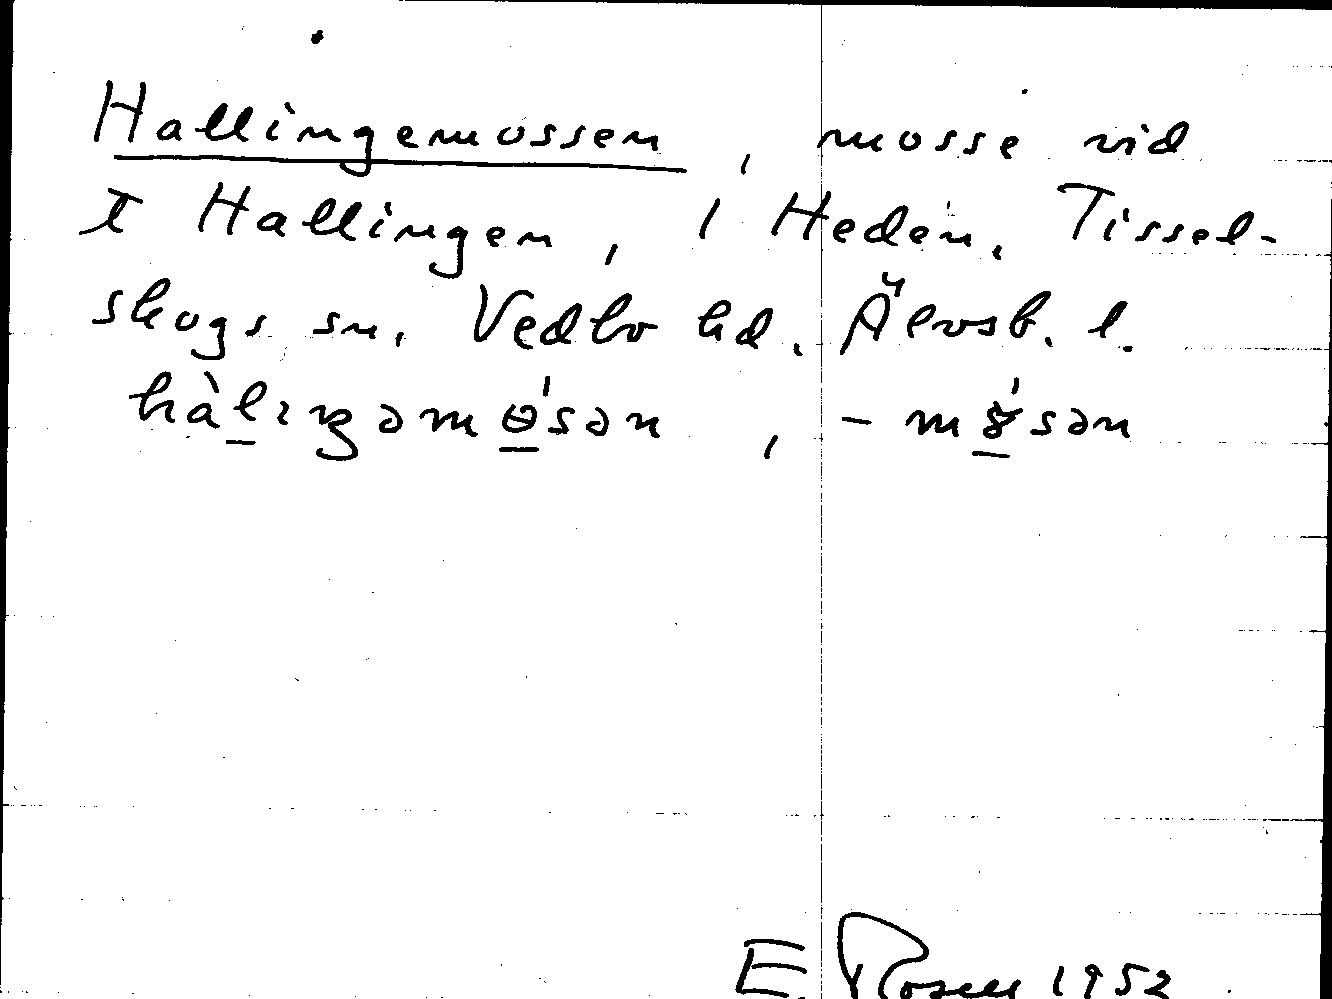 Hallingemossen, mosse vid
t Hallingen, 1 Heden, Tissel-
skogs sn, Vedbo hd. Älvsb. l.
hàl̲ıŋəmɵ̲́sən, -mɤ̲́sən
E. Rosell 1952